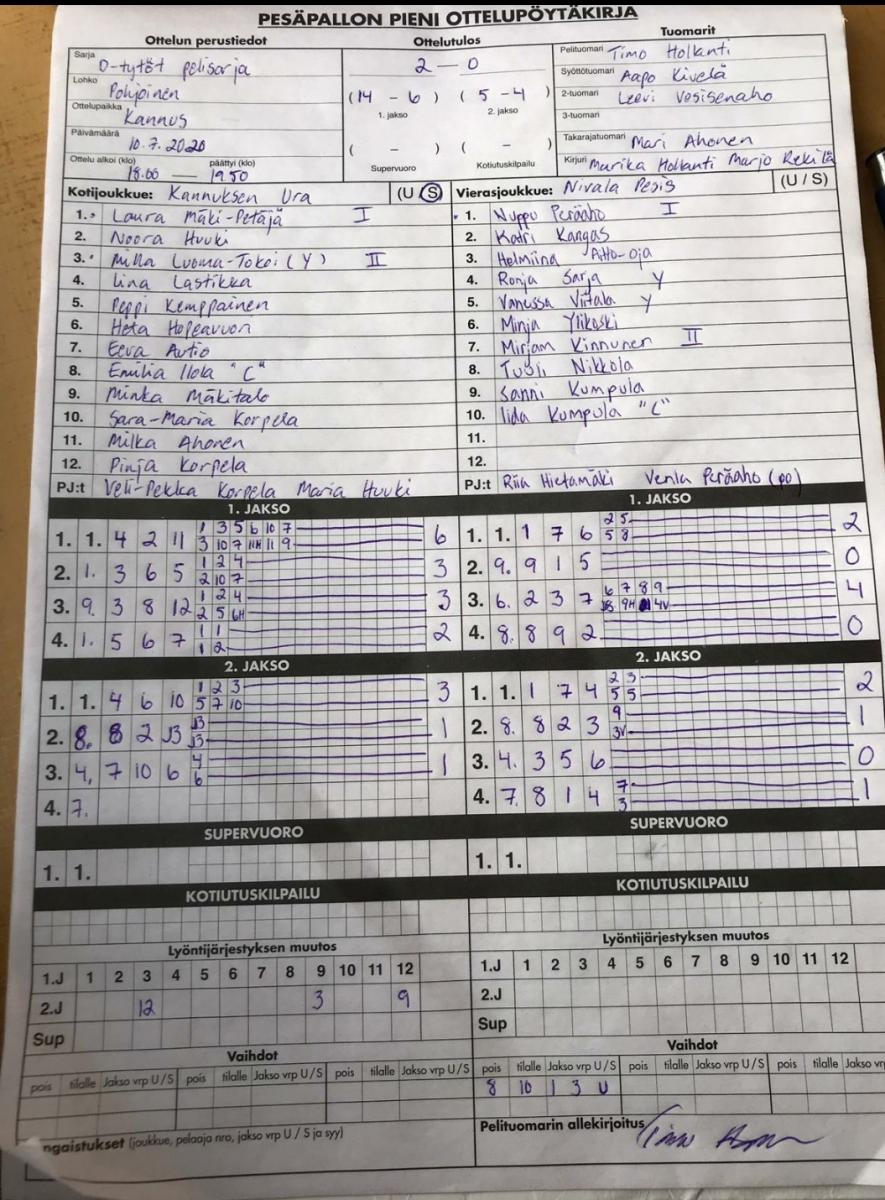 PESÄPALLON PIENI OTTELUPÖYTÄKIRJA
Ottelun perustiedot
Sarja
D-tytöt pelisarja
Lohko
Pohjoinen
Ottelupaikka
Kannus
Päivämäärä
10.7.2020
Ottelu alkoi (klo) päättyi (klo)
18.00 — 19.50
Ottelutulos
2 — 0
(14 - 6) (5 - 4)
1. jakso 2. jakso
( - ) ( - )
Supervuoro Kotiutuskilpailu
Tuomarit
Pelituomari Timo Hollanti
Syöttötuomari Aapo Kivelä
2-tuomari Leevi Vesisenaho
3-tuomari
Takarajatuomari Mari Ahonen
Kirjuri Marika Hollanti Marjo Rekilä
Kotijoukkue: Kannuksen Ura (U / S)
1. Laura Mäki-Petäjä I
2. Noora Huuki
3. Milla Luoma-Tokoi (Y) II
4. Iina Lastikka
5. Peppi Kemppainen
6. Heta Hopeavuori
7. Eeva Autio
8. Emilia Ilola "C"
9. Minka Mäkitalo
10. Sara-Maria Korpela
11. Milka Ahonen
12. Pinja Korpela
PJ:t Veli-Pekka Korpela Maria Huuki
Vierasjoukkue: Nivala Pesis (U / S)
1. Nuppu Peräaho I
2. Katri Kangas
3. Helmiina Aitto-oja
4. Ronja Sarja Y
5. Vanessa Viitala Y
6. Minja Ylikoski
7. Mirjam Kinnunen II
8. Tuuli Nikkola
9. Sanni Kumpula
10. Iida Kumpula "C"
11.
12.
PJ:t Riia Hietamäki Venla Peräaho (po)
1. JAKSO
1. 1. 4 2 11 1 3 5 6 10 7 6
3 10 7 11H 11 9
2. 1. 3 6 5 1 2 4 3
2 10 7
3. 9. 3 8 12 1 2 4 3
2 5 6H
4. 1. 5 6 7 1 1 2
1 2
1. JAKSO
1. 1. 1 7 6 2 5 2
5 8
2. 9. 9 1 5 0
3. 6. 2 3 7 6 7 8 9 4
8 9H 4V
4. 8. 8 9 2 0
2. JAKSO
1. 1. 4 6 10 1 2 3 3
5 7 10
2. 8. 8 2 J3 J3 1
J3
3. 4, 7 10 6 4 1
6
4. 7.
2. JAKSO
1. 1. 1 7 4 2 3 2
5 5
2. 8. 8 2 3 9 1
3V
3. 4. 3 5 6 0
4. 7. 8 1 4 7 1
3
SUPERVUORO
1. 1.
SUPERVUORO
1. 1.
KOTIUTUSKILPAILU
KOTIUTUSKILPAILU
Lyöntijärjestyksen muutos
1.J 1 2 3 4 5 6 7 8 9 10 11 12
2.J 12 3 9
Sup
Lyöntijärjestyksen muutos
1.J 1 2 3 4 5 6 7 8 9 10 11 12
2.J
Sup
Vaihdot
pois tilalle Jakso vrp U/S pois tilalle Jakso vrp U/S pois tilalle Jakso vrp U/S
Vaihdot
pois tilalle Jakso vrp U/S pois tilalle Jakso vrp U/S pois tilalle Jakso vr
8 10 1 3 U
ngaistukset (joukkue, pelaaja nro, jakso vrp U / S ja syy)
Pelituomarin allekirjoitus